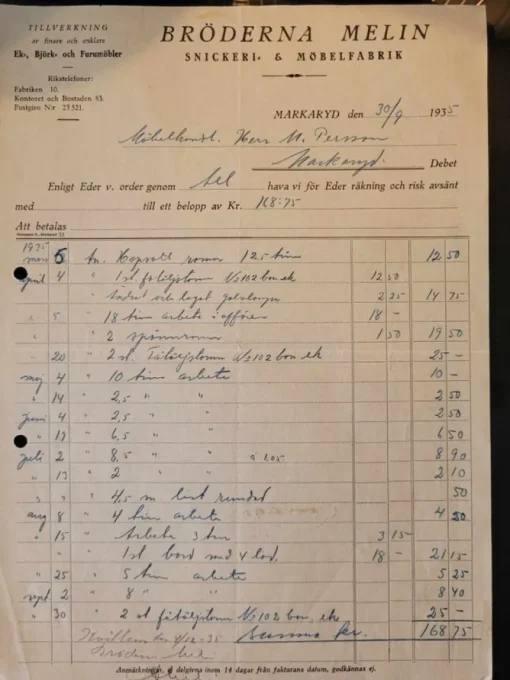 TILLVERKNING
av finare och enklare
Ek-, Björk- och Furumöbler
Rikstelefoner:
Fabriken 10.
Kontoret och Bostaden 83.
Postgiro N:r 25521.
BRÖDERNA MELIN
SNICKERI- & MÖBELFABRIK
MARKARYD den 30/9 1935
Möbelhandl. Herr M. Persson
Markaryd. Debet
Enligt Eder v. order genom tel hava vi för Eder räkning och risk avsänt
med till ett belopp av Kr. 168:75
Att betalas
1935
mars 5 An. 12.5 tim 12 50
april 4 " 1 st. fåtöljstom No 102 bon ek 12 50
" ändrat och lagat 2 25 14 75
" 5 " 18 tim arbete i affären 18 -
" 2 1 50 19 50
" 20 " 2 st. Fåtöljstom No 102 bon ek 25 -
maj 4 " 10 tim arbete 10 -
" 14 " 2,5 " " 2 50
juni 4 " 2,5 " " 2 50
" 17 " 6,5 " " 6 50
juli 2 " 8,5 " " à 1.05 8 90
" 13 " 2 " " 2 10
" " " 4,5 m list rundad 50
aug 8 " 4 tim arbete 4 50
" 15 " Arbete 3 tim 3 15
" 1 st bord med 4 lod. 18 - 21 15
" 25 " 5 tim arbete 5 25
sept. 2 " 8 " " 8 40
" 30 " 2 st fåtöljstom No 102 bon, ek 25 -
Summa kr. 168 75
Kvitteras den /12-35
Bröderna Melin
Anmärkningar, ej delgivna inom 14 dagar från fakturans datum, godkännas ej.